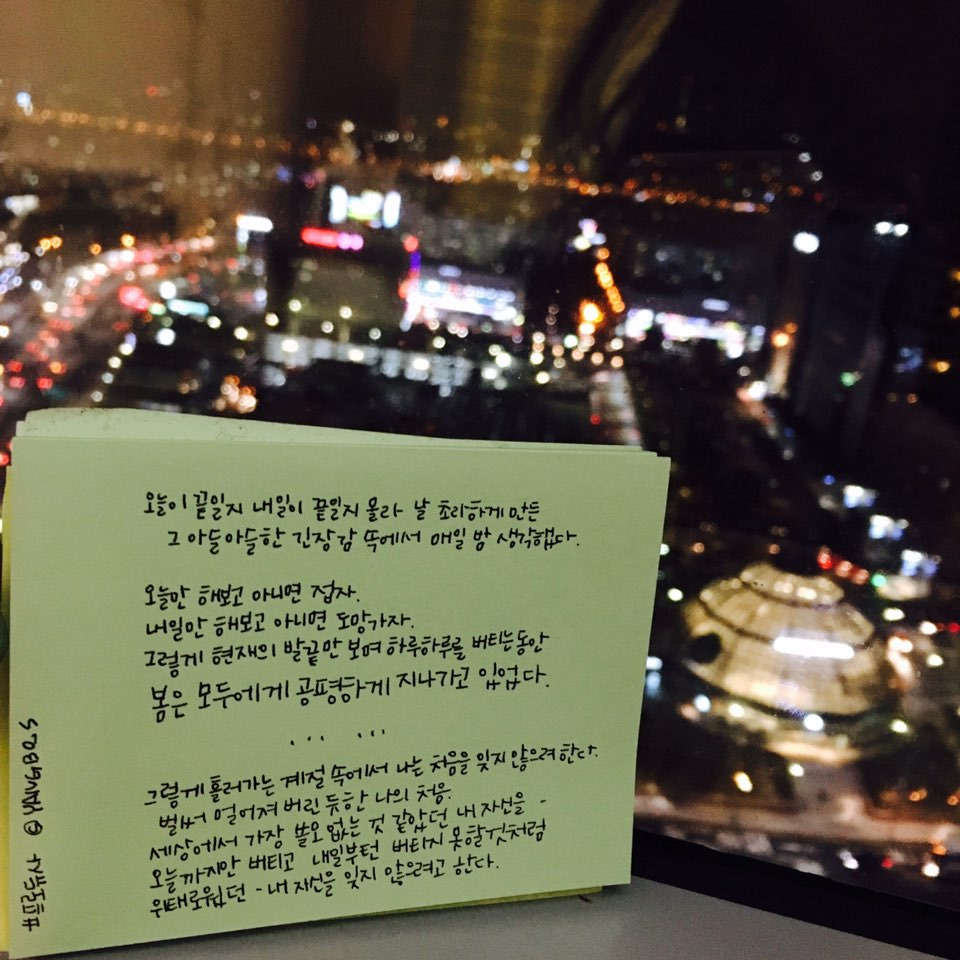 오늘이 끝일지 내일이 끝일지 몰라 날 초라하게 만든
그 아들아슬한 긴장감 속에서 매일 밤 생각했다.
오늘만 해보고 아니면 접자.
내일만 해보고 아니면 도망가자.
그렇게 현재의 발끝만 보며 하루하루를 버티는동안
봄은 모두에게 공평하게 지나가고 있었다.
... ...
그렇게 흘러가는 계절 속에서 나는 처음을 잊지 않으려 한다.
벌써 멀어져 버린 듯한 나의 처음.
세상에서 가장 쓸모 없는 것 같았던 내 자신을 -
오늘까지만 버티고 내일부턴 버티지 못할것처럼
위태로웠던 - 내 자신을 잊지 않으려고 한다.